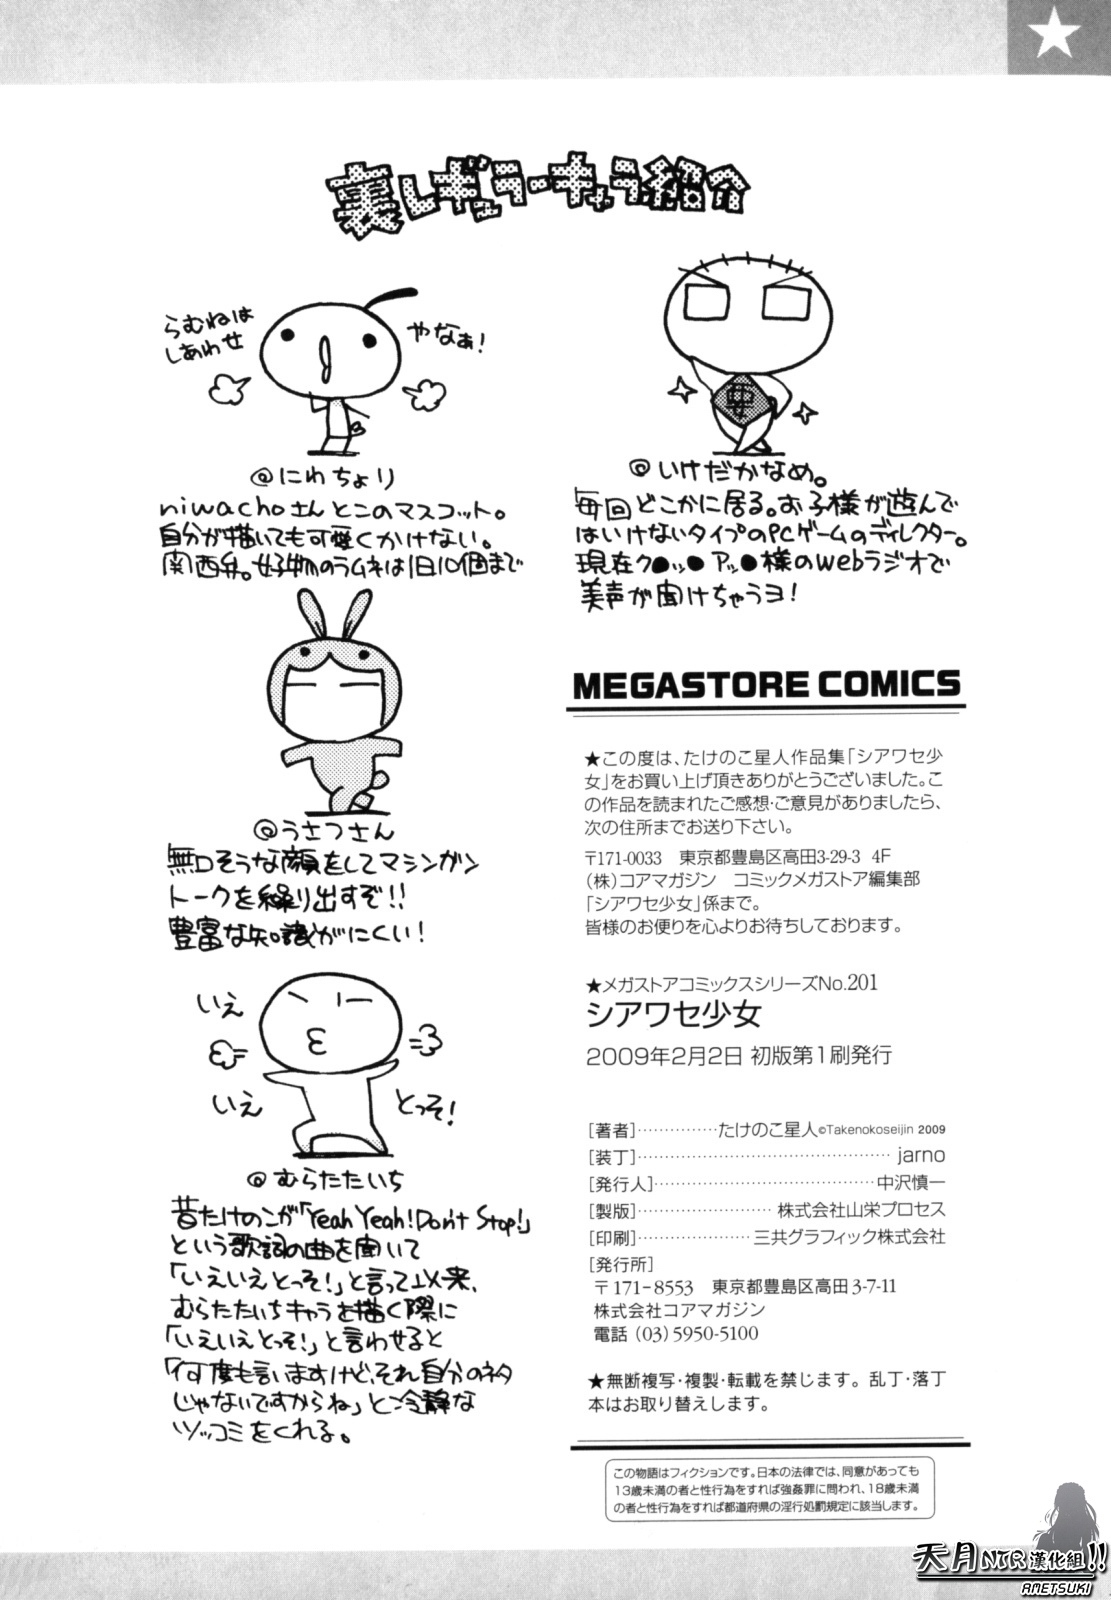 裏レギュラーキャラ紹介
らむねは
しあわせ
やなぁ!
@にわちょり
niwachoさんとこのマスコット。
自分が描いても可愛くかけない。
関西弁。好物のラムネは1日10個まで
@うさつさん
無口そうな顔をしてマシンガン
トークを繰り出すぞ!!
豊富な知識がにくい!
いえ
いえ
とっそ!
@むらたたいち
昔たけのこが「Yeah Yeah!Don't Stop!」
という歌詞の曲を聞いて
「いえいえとっそ!」と言って以来、
むらたたいちキャラを描く際に
「いえいえとっそ!」と言わせると
「何度も言いますけど、それ自分のネタ
じゃないですからね」と冷静な
ツッコミをくれる。
要
@いけだかなめ。
毎回どこかに居る。お子様が遊んで
はいけないタイプのPCゲームのディレクター。
現在ク●ッ● アッ●様のwebラジオで
美声が聞けちゃうヨ!
MEGASTORE COMICS
★この度は、たけのこ星人作品集「シアワセ少
女」をお買い上げ頂きありがとうございました。こ
の作品を読まれたご感想・ご意見がありましたら、
次の住所までお送り下さい。
〒171-0033 東京都豊島区高田3-29-3 4F
(株)コアマガジン コミックメガストア編集部
「シアワセ少女」係まで。
皆様のお便りを心よりお待ちしております。
★メガストアコミックスシリーズNo.201
シアワセ少女
2009年2月2日 初版第1刷発行
[著者]……………たけのこ星人©Takenokoseijin 2009
[装丁]………………………………………jarno
[発行人]………………………………中沢慎一
[製版]……………………株式会社山栄プロセス
[印刷]…………………三共グラフィック株式会社
[発行所]
〒171-8553 東京都豊島区高田3-7-11
株式会社コアマガジン
電話 (03)5950-5100
★無断複写・複製・転載を禁じます。乱丁・落丁
本はお取り替えします。
この物語はフィクションです。日本の法律では、同意があっても
13歳未満の者と性行為をすれば強姦罪に問われ、18歳未満
の者と性行為をすれば都道府県の淫行処罰規定に該当します。
天月NTR漢化組!!
AMETSUKI